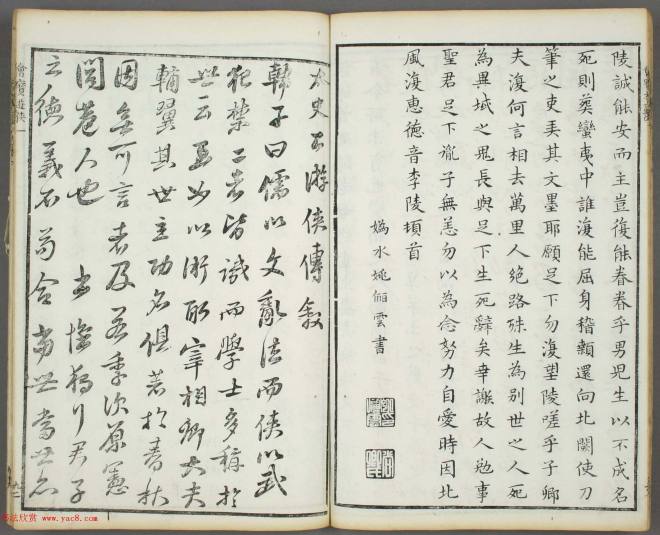 陵誠能安而主豈復能眷眷乎男兒生以不成名
死則葬蠻夷中誰復能屈身稽顙還向北闕使刀
筆之吏弄其文墨耶願足下勿復望陵嗟乎子卿
夫復何言相去萬里人絕路殊生為別世之人死
為異域之鬼長與足下生死辭矣幸謝故人勉事
聖君足下胤子無恙勿以為念努力自愛時因北
風復惠德音李陵頓首
媯水姚儷雲書
太史公游俠傳敘
韓子曰儒以文亂法而俠以武
犯禁二者皆譏而學士多稱於
世云至如以術取宰相卿大夫
輔翼其世主功名俱著於春秋
固無可言者及若季次原憲
閭巷人也 書懷獨行君子
之德義不苟合當世當世亦
书法欣赏 www.yac8.com